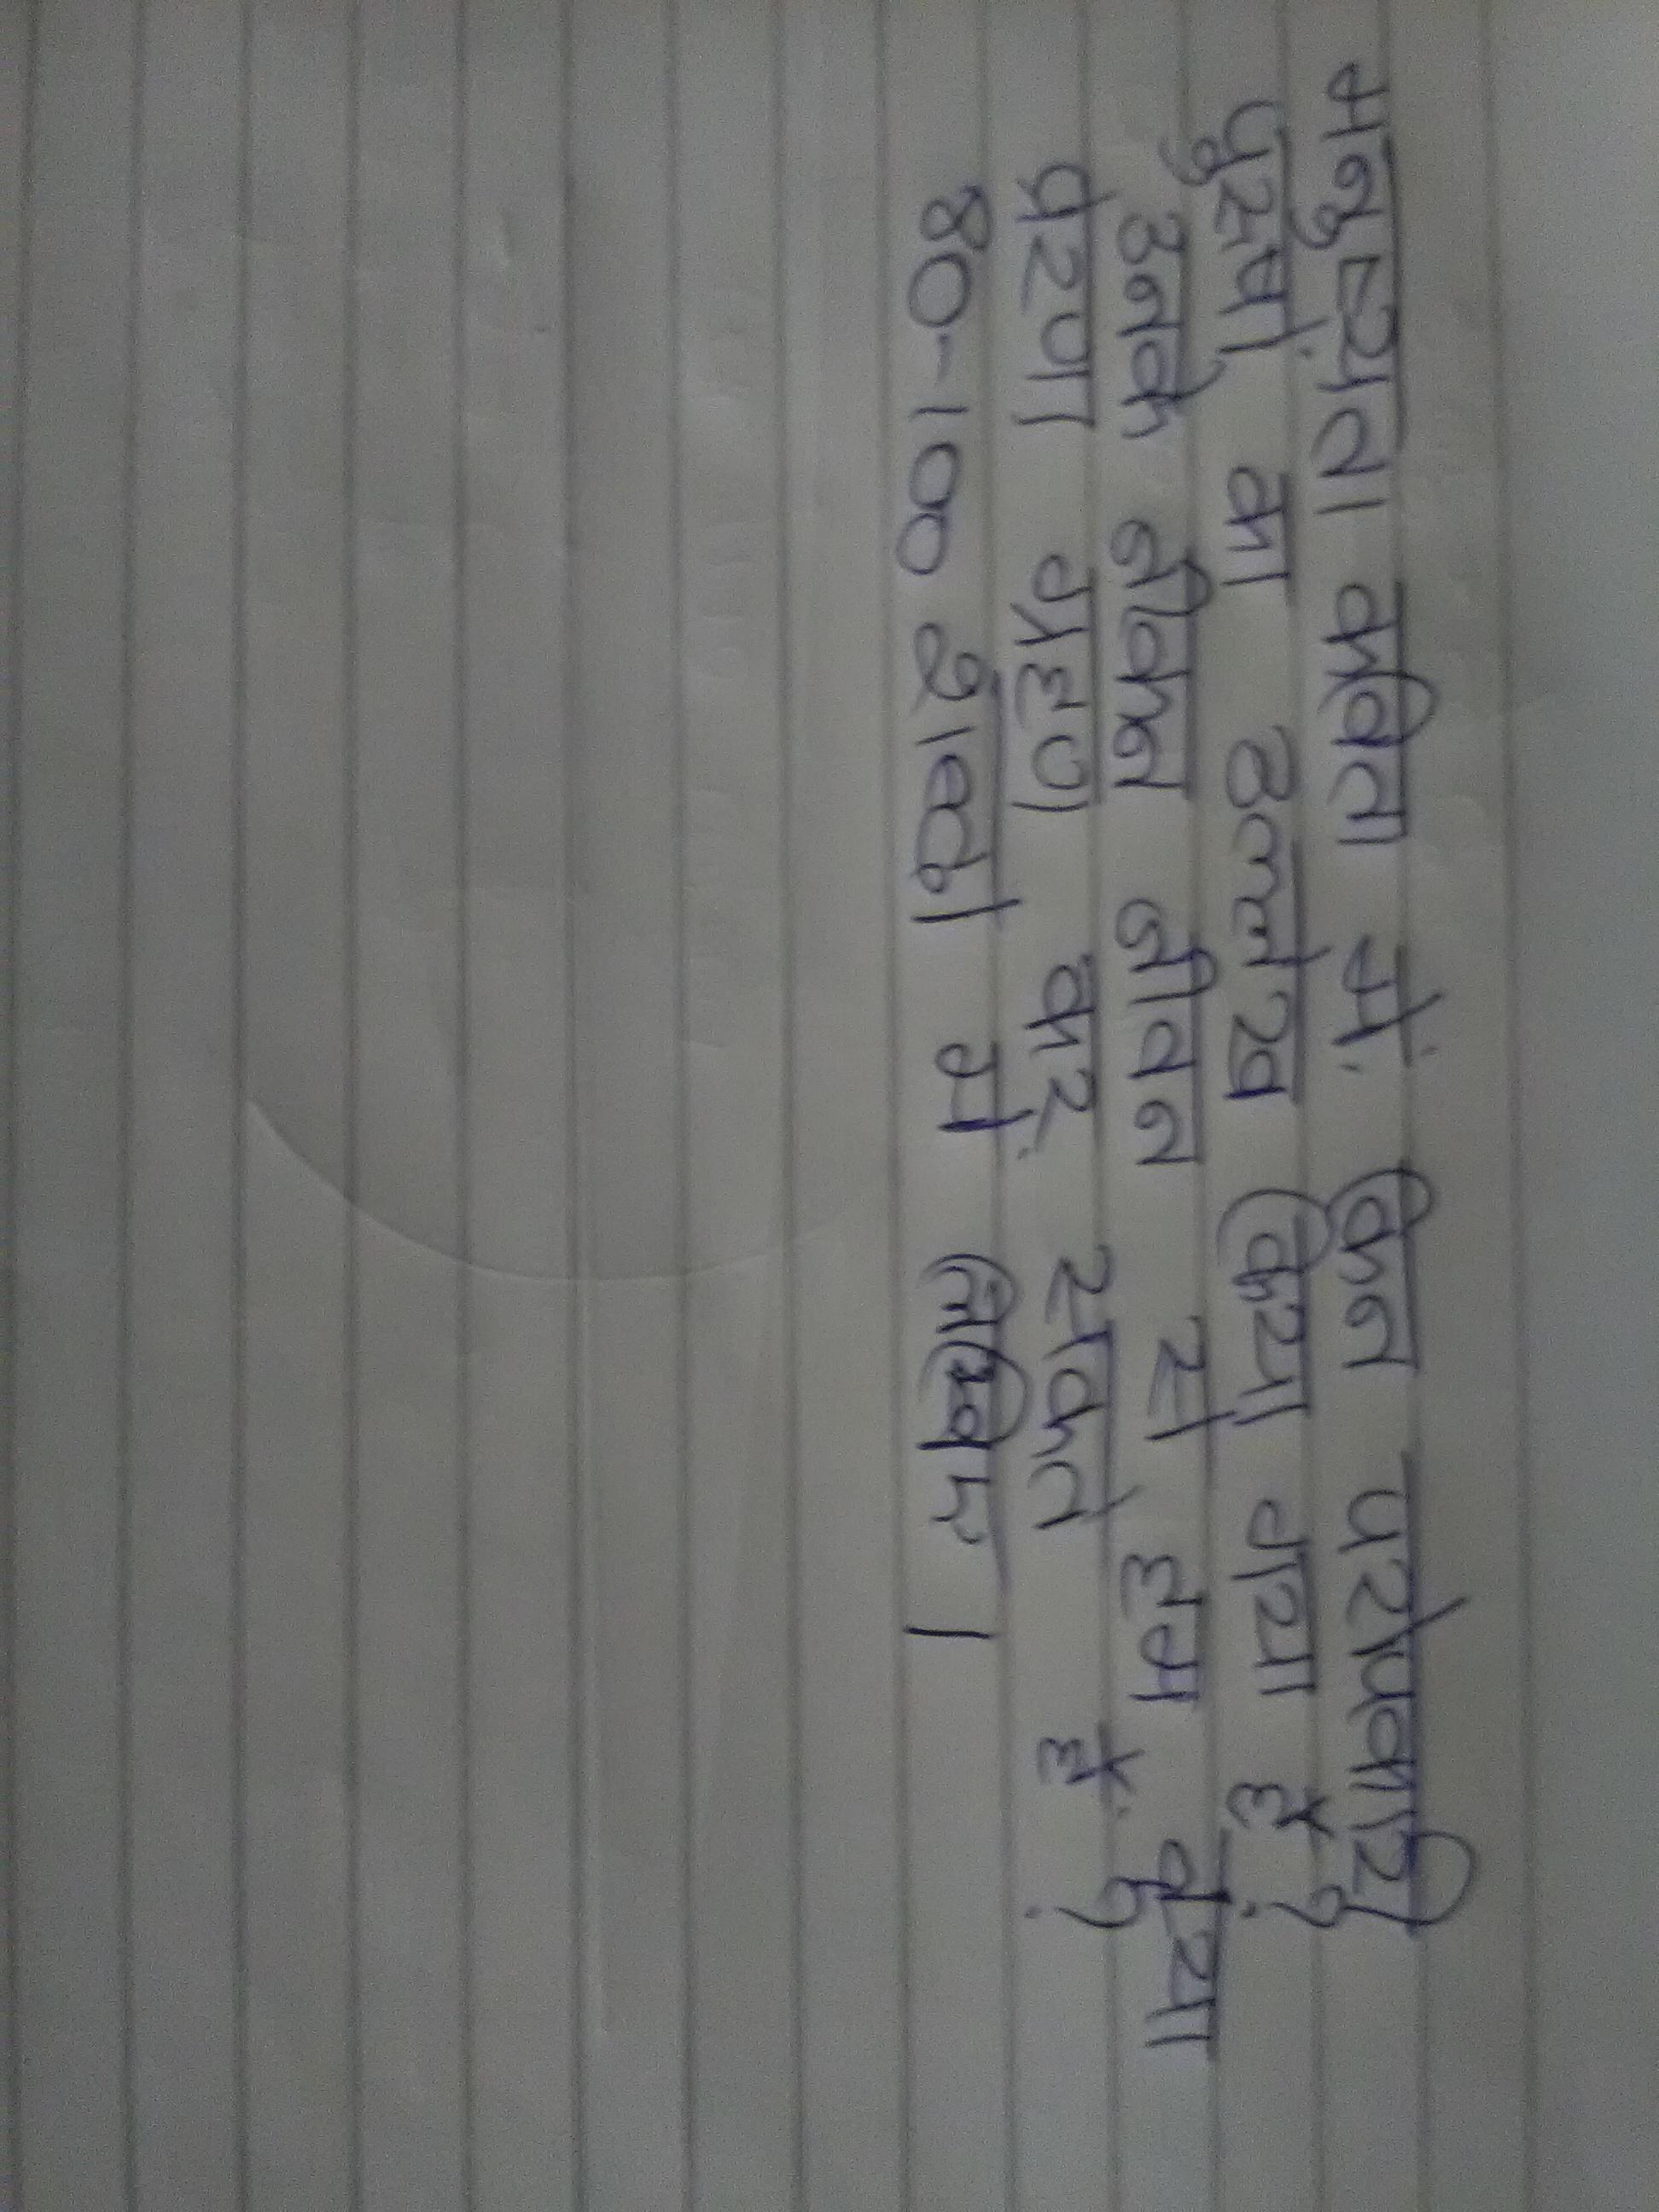 मनुष्यता कविता में किन परोपकारी
पुरुषों का उल्लेख किया गया है?
उनके जीवन जीवन से हम क्या
प्ररणा ग्रहण कर सकते हैं?
80-100 शब्दो में लिखिए।